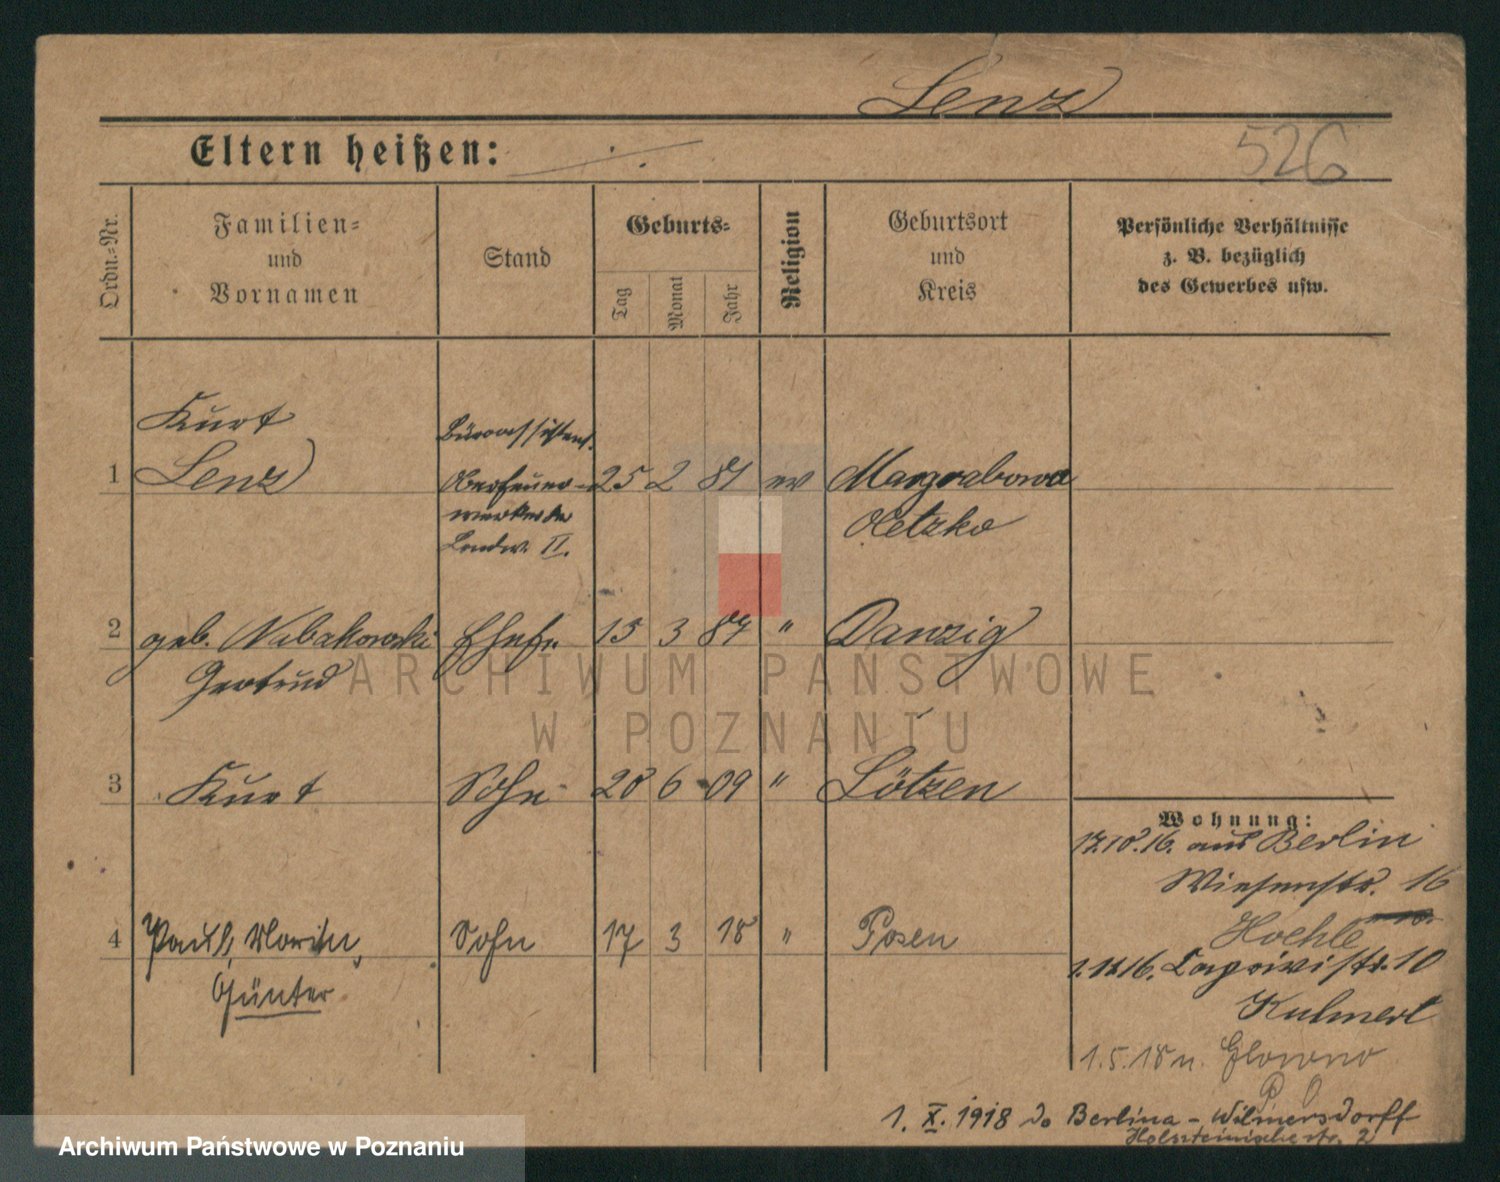 Lenz
Eltern heißen: ./.
526
Ordn.=Nr.
Familien=
und
Vornamen
Stand
Geburts=
Tag
Monat
Jahr
Religion
Geburtsort
und
Kreis
Persönliche Verhältnisse
z. B. bezüglich
des Gewerbes usw.
Kurt
Lenz
Büroassistent.
1 25 2 81 ev Margrabowa
Oberfeuer-
werker der
Landw. II.
Oletzko
2 geb. Nabakowski Ehefr. 15 3 87 " Danzig
Gertrud
3 Kurt Sohn 28 6 09 " Lötzen
4 Paul, Martin, Sohn 17 3 18 " Posen
Günter
Wohnung:
17.10.16. aus Berlin
Wiesenstr. 16
Hoehle
1.12.16. Caprivistr. 10
Kulmert
1.5.18 n. Glowno
1. X. 1918 do Berlina - Wilmersdorff
Holsteinischestr. 2
ARCHIWUM PAŃSTWOWE
W POZNANIU
Archiwum Państwowe w Poznaniu